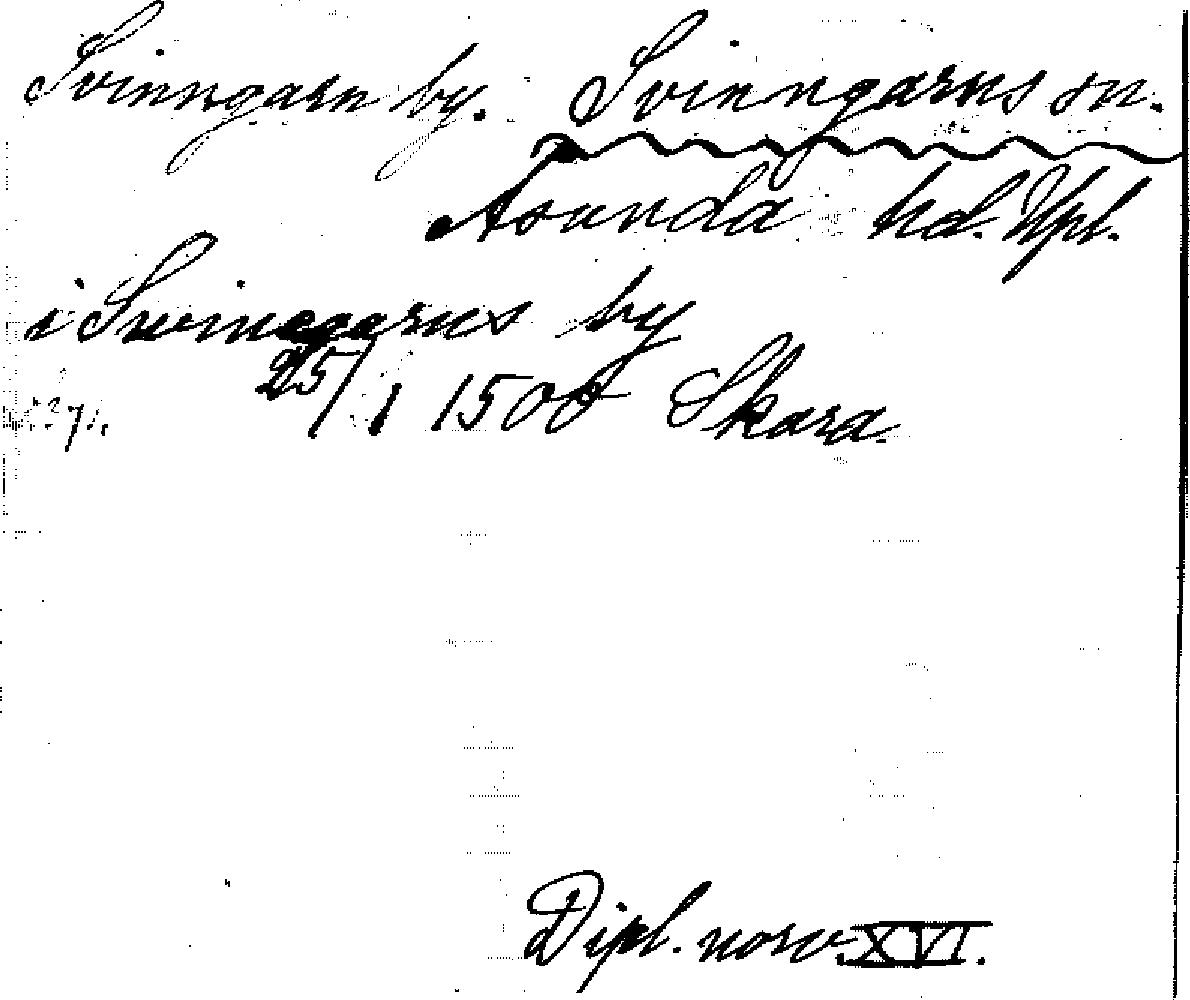 Svinngarn by. Svinngarns sn.
Åsunda hd. Upl.
i Swinegarns by
25/1 1500 Skara.
Dipl. norv. XVI.